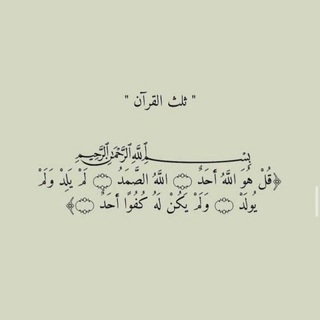 " ثلث القرآن "
بِسْمِ ٱللَّهِ ٱلرَّحْمَٰنِ ٱلرَّحِيمِ
﴿قُلْ هُوَ اللَّهُ أَحَدٌ ۝ اللَّهُ الصَّمَدُ ۝ لَمْ يَلِدْ وَلَمْ
يُولَدْ ۝ وَلَمْ يَكُنْ لَهُ كُفُوًا أَحَدٌ ۝﴾